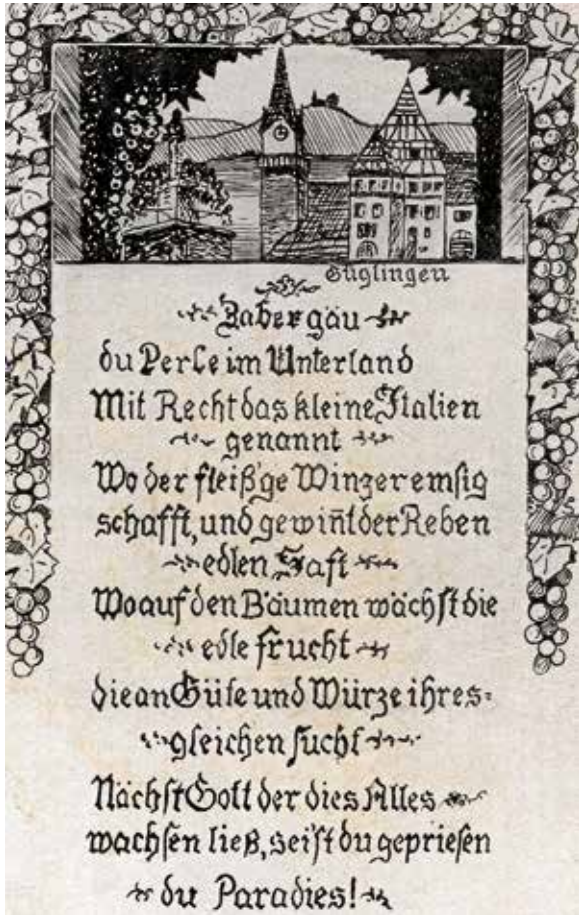 Güglingen
Zabergäu
du Perle im Unterland
Mit Recht das kleine Italien
genannt
Wo der fleiß'ge Winzer emsig
schafft, und gewin̄t der Reben
edlen Saft
Wo auf den Bäumen wächst die
edle frucht
die an Güte und Würze ihres=
gleichen sucht
Nächst Gott der dies Alles
wachsen ließ, sei'st du gepriesen
du Paradies!